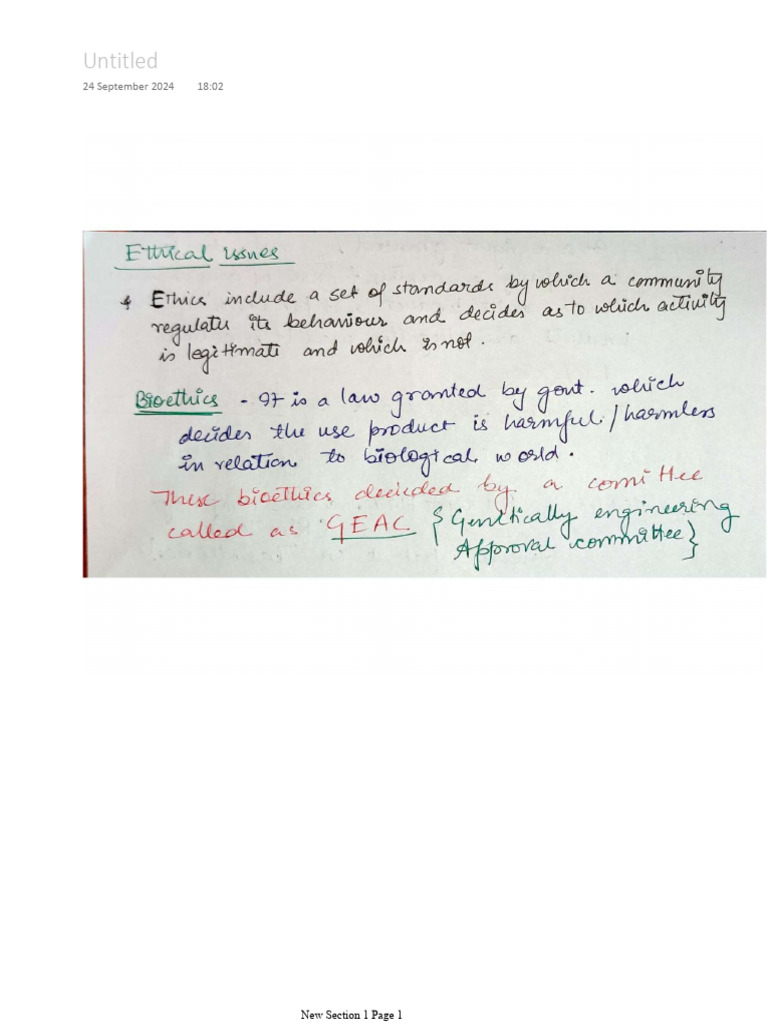 Untitled
24 September 2024 18:02
Ethical issues
* Ethics include a set of standards by which a community
regulates its behaviour and decides as to which activity
is legitimate and which is not.
Bioethics - It is a law granted by govt. which
decides the use product is harmful / harmless
in relation to biological world.
These bioethics decided by a comittee
called as GEAC { Genetically engineering
Approval committee }
New Section 1 Page 1